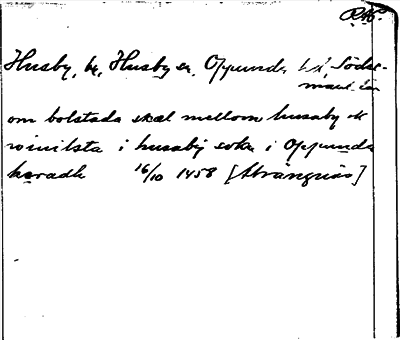 RAP.
Husby, k, Husby sn, Oppunda hd, Söder-
manl. län
om bolstada skæl mellom husaby ok
i husaby sokn i Oppunda
hæradh 16/10 1458 [Strängnäs]